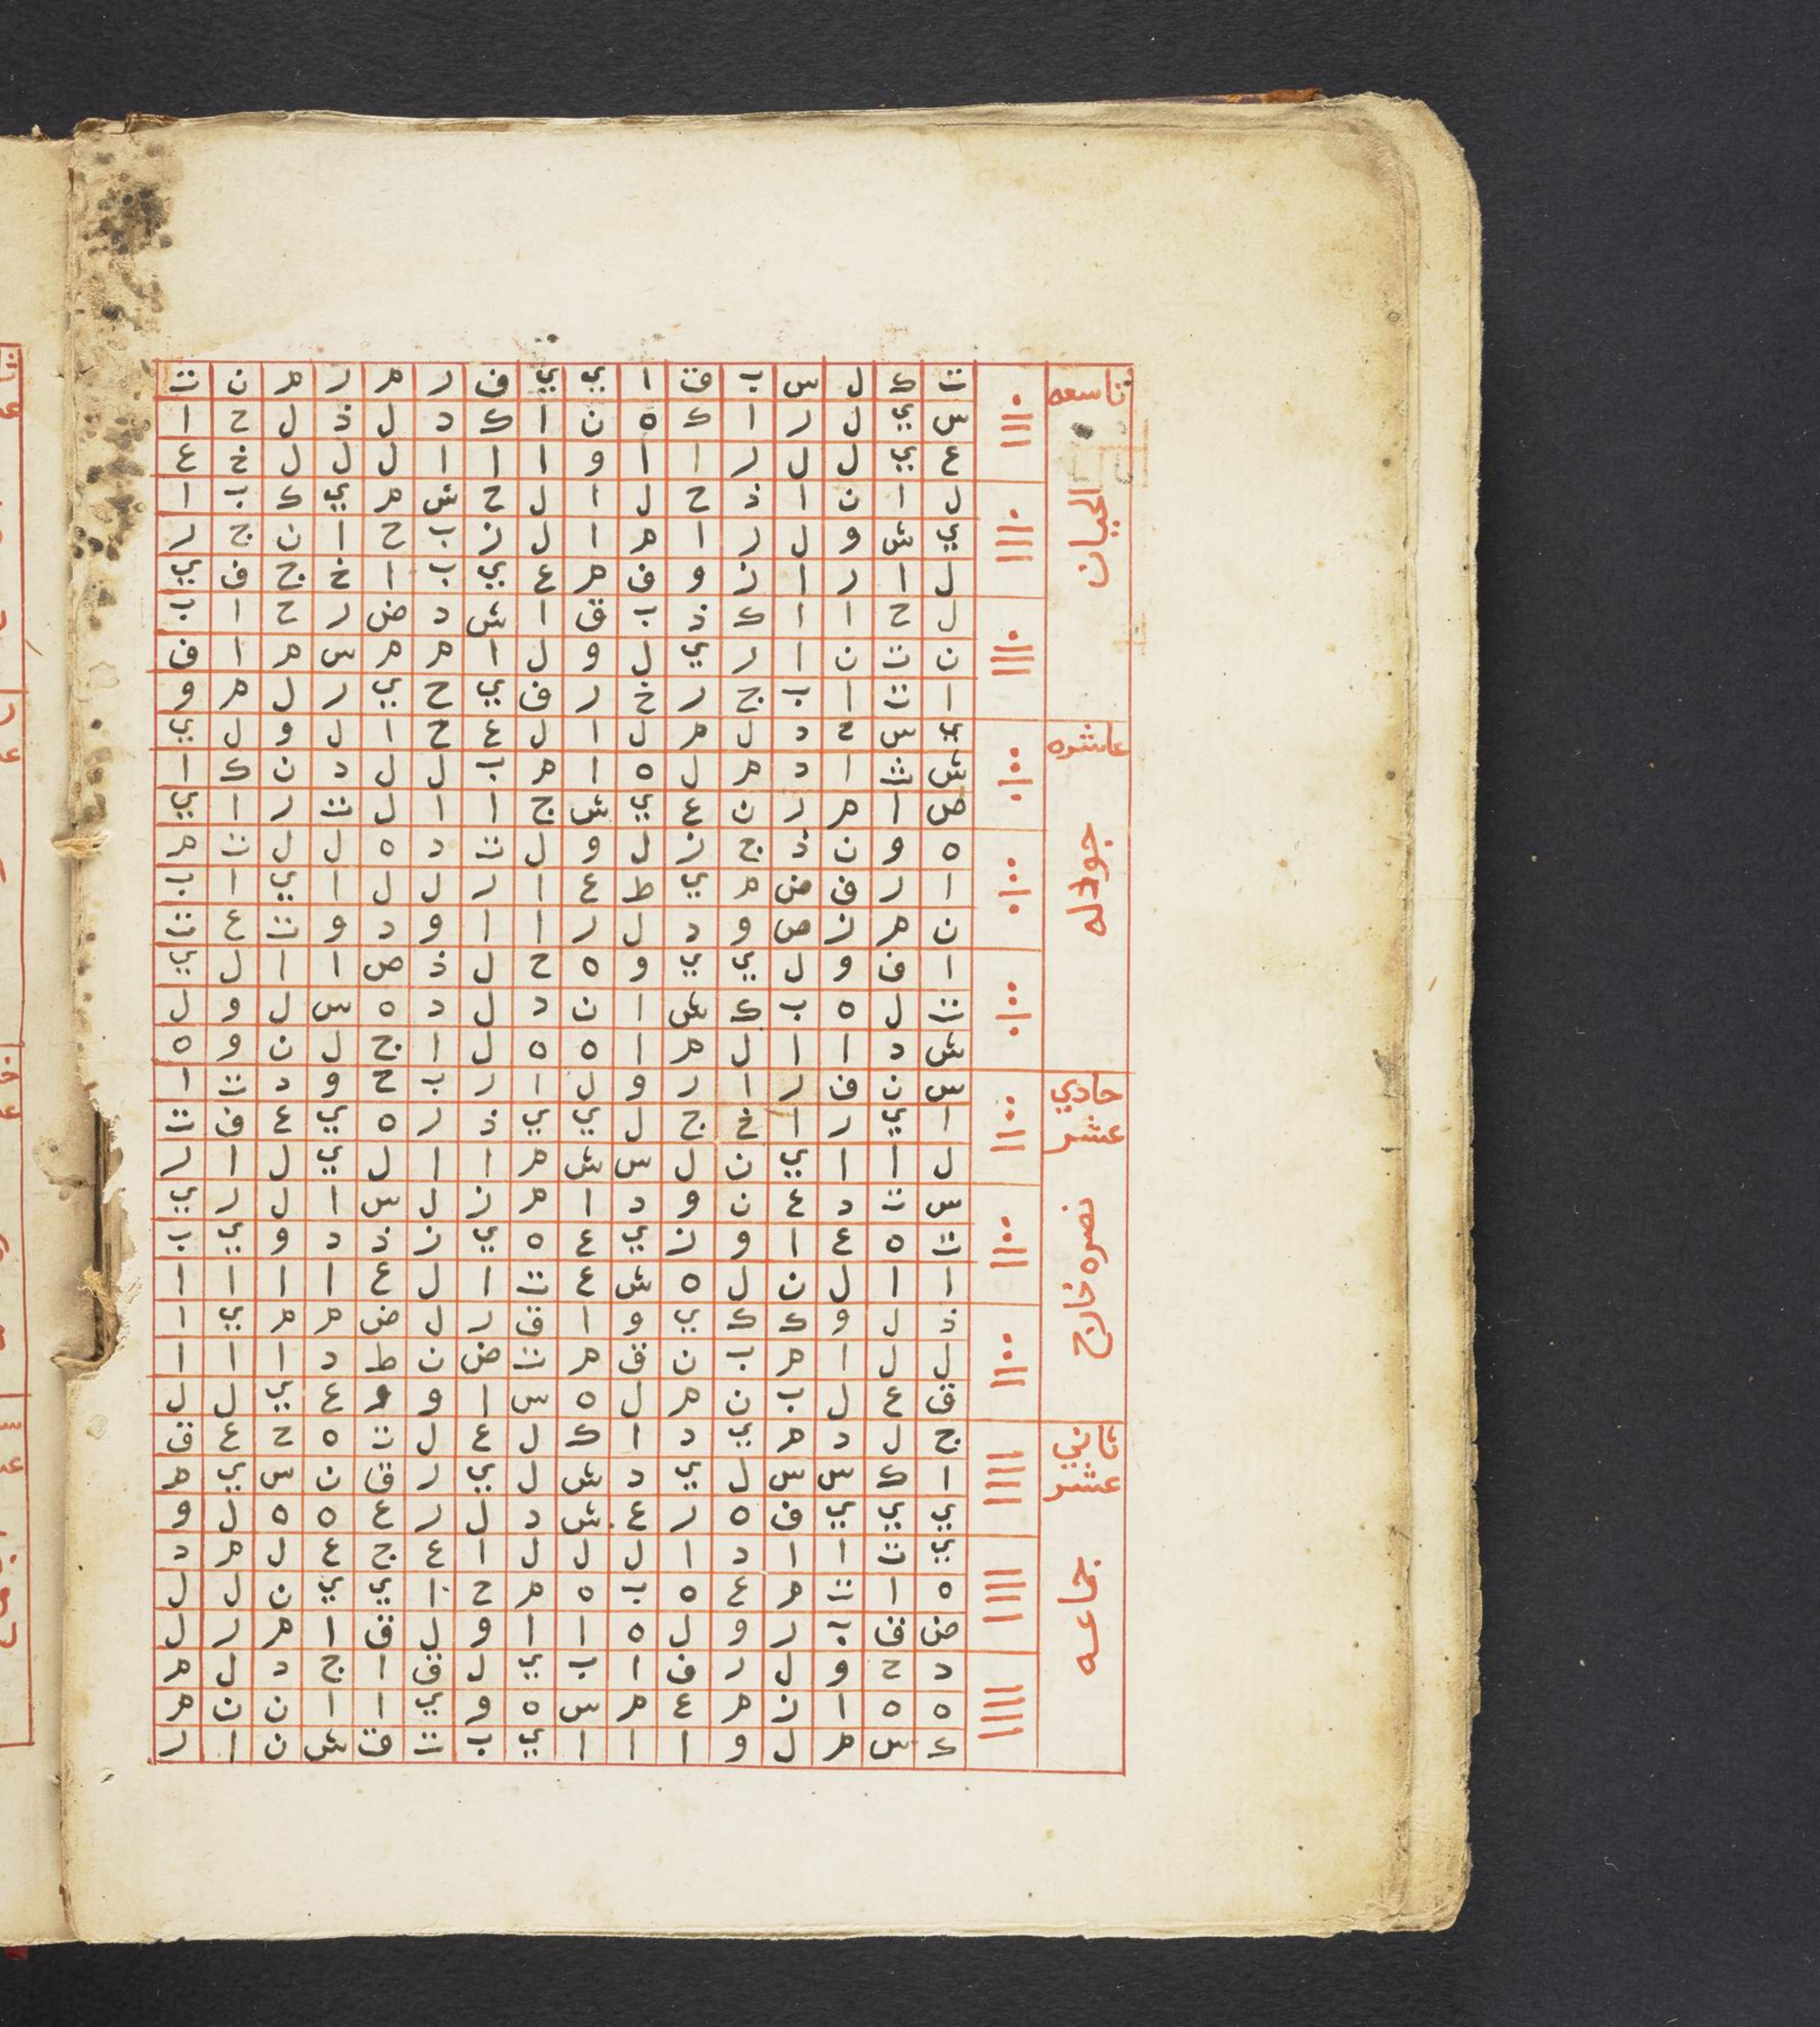 تاسعه
الحيان
ت ك ل س ب ق ا ي ي ف ر م ر م ن ت
س ي ل ر ا ك ه ن ا ك د ل ذ ل ح ا
ع ي ل ل ر ا ا و ا ا ا ل ل ل خ ع
ل ا ن ا ذ ح ل ا ل ح ش م ي ك ب ا
ي ش و ل ر ا م ا ل ز ب ح ا ن ج ر
ل ا ر ا ن و ف م ع ي ب ا خ ج ف ي
ل ح ا ا ك ذ ب ق ا ش د ض ر ح ا ب
ن ت ن ا ر ي ل و ل ا م م س م ا ف
ا ت ا ب ج ر خ ر ف ي ح ي ر ل م و
عاشره
جودله
ي س ح د ل م ل ا ل ع ح ا ل و ل ي
ش ت ا د م ل ه ا م ب ل ل د ن ك ا
ص ا م ر ن ع ي ش ج ا ا ل ت ر ا ي
ه و ن ذ ج ز ل و ل ت د ه ل ل ت م
ا ر ف ض م ي ط ع ا ر ل ل ا ي ا ب
ن م ز ص و د ل ر ا ا و د و ت ع ت
ا ف و ل ي ي و ه ح ل ذ ص ا ا ل ي
ت ل ه ب ك ش ا ن د ل د ه س ل و ل
ش د ا ا ل م ا ه ه ل ا ج ل ن و ه
حادي
عشر
نصره خارج
س ن ف ر ا ر و ل ا ر ب ح و د ت ا
ا ي ر ا خ ج ل ي ي ذ ر ه ي ع ف ت
ل ا ا ي ن ل س ش م ا ا ل ي ل ا ر
س ت د ع ن و د ا م ز ل س ا ل ر ي
ت ه ع ا و ز ي ع ه ي ز ذ د و ي ب
ا ا ل ن ل ه ش ع ت ا ل ع ا ا ا ا
ذ ل و ك ك ي و ا ق ر ل ض م م ي ا
ل ل ا م ب ن ق م ت ض ن ط د ا ا ا
ق ع ل ب ن م ل ه س ا و و ع ي ل ل
ثاني
عشر
جماعه
ج ل د م ي د ا ك ل ع ل ت ه ح ع ق
ا ك س س ل ي د ش ل ي ر ق ن س ي م
ي ي ي ف ه ر ع ش د ل ر ع ه ه ل و
ي ت ا ا د ا ل ل ل ا ع ج ع ل م د
ه ا ت م ع ه ب ه م ح ا ي ي ن ل ل
ض ق ب ر و ل ه ا ا و ل ق ا م ر ل
د ح و ل ر ف ا ب ي ل ق ا ج د ل م
ه ه ا ز م ع م س ه و ي ا ا ن ن م
ك س م ل و ا ا ا ي ب ت ق ش ن ا ر